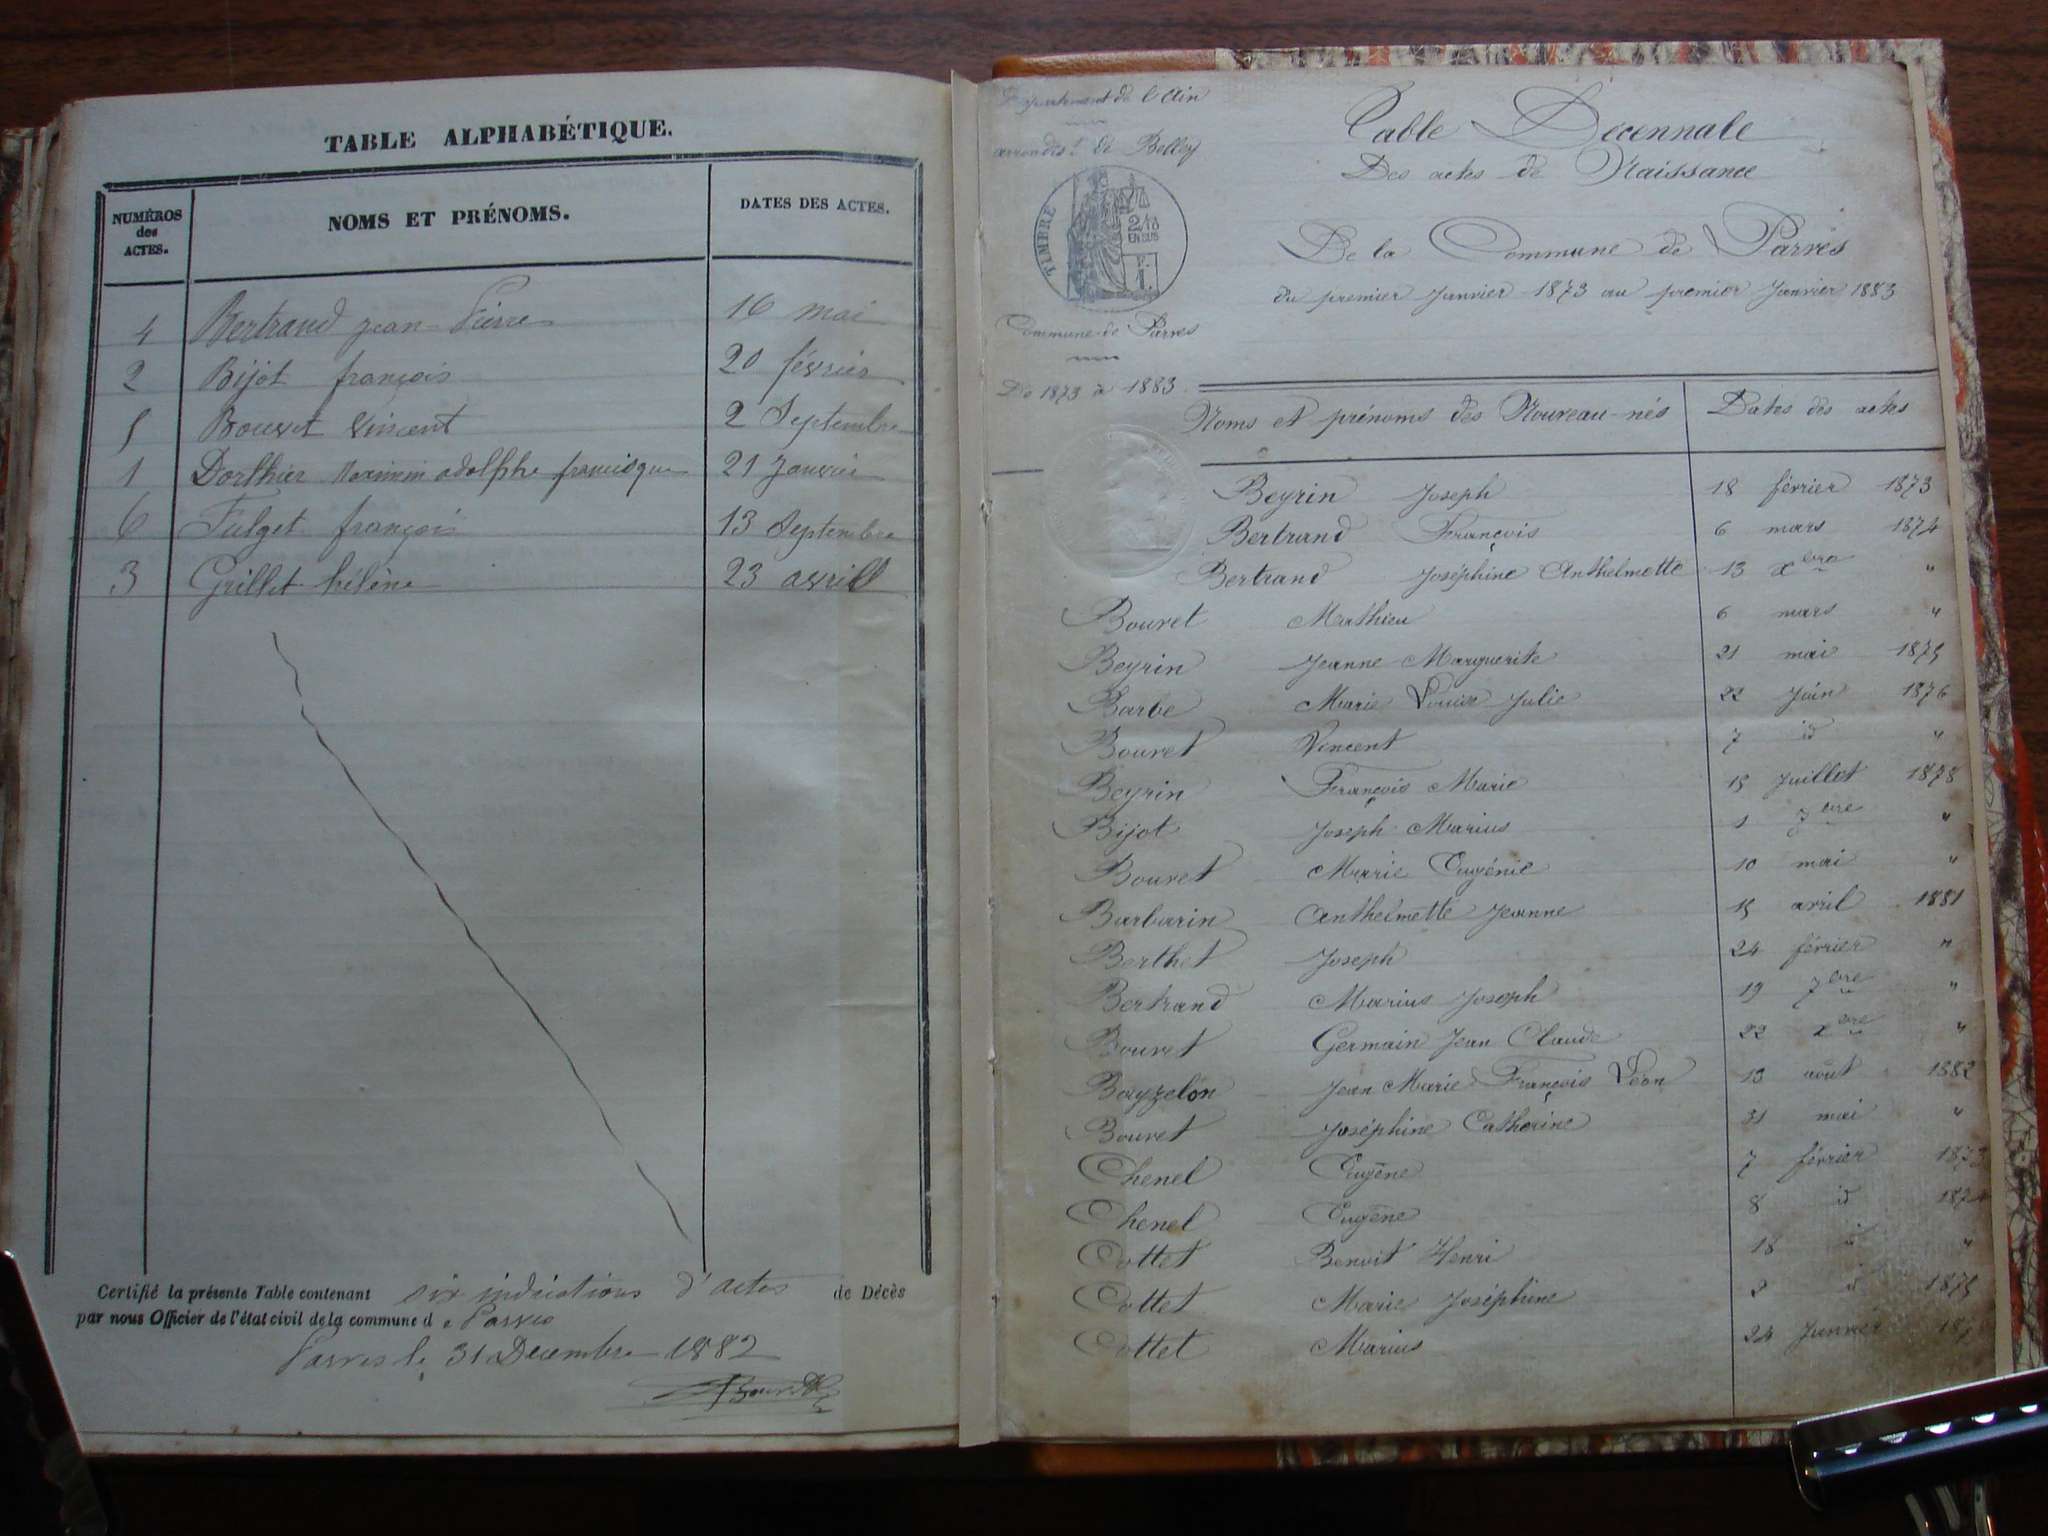 TABLE ALPHABÉTIQUE.
NUMÉROS des ACTES.
NOMS ET PRÉNOMS.
DATES DES ACTES.
4 Bertrand jean-Pierre 16 mai
2 Bijot françois 20 février
5 Bouvet Vincent 2 Septembre
1 Dorthier Maximin adolphe francisque 21 Janvier
6 Fulget françois 13 Septembre
3 Grillet hélène 23 avrill
Certifié la présente Table contenant six indications d'actes de Décès
par nous Officier de l'état civil de la commune d e Parves
Parves le 31 Decembre 1882
Département de l'Ain
arrondist de Belley
TIMBRE
2/10
EN SUS
F.
1.
Commune de Parves
De 1873 à 1883
Table Decennale
Des actes de Naissance
De la Commune de Parves
du premier Janvier 1873 au premier Janvier 1883
Noms et prénoms des Nouveau-nés Dates des actes
Beyrin Joseph 18 février 1873
Bertrand François 6 mars 1874
Bertrand Joséphine Anthelmette 13 xbre "
Bouvet Mathieu 6 mars "
Beyrin Jeanne Marguerite 21 mai 1875
Barbe Marie Louise Julie 22 Juin 1876
Bouvet Vincent 7 id "
Beyrin François Marie 15 Juillet 1878
Bijot Joseph Marius 1 7bre "
Bouvet Marie Eugénie 10 mai "
Barbarin Anthelmette Jeanne 15 avril 1881
Berthet Joseph 24 février "
Bertrand Marius Joseph 19 7bre "
Bouvet Germain Jean Claude 22 xbre "
Bayzelon Jean Marie François Léon 13 août 1882
Bouvet Joséphine Catherine 31 mai "
Chenel Eugène 7 février 1873
Chenel Eugène 8 id 1874
Cottet Benoit Henri 18 id "
Cottet Marie Joséphine 2 id 1875
Cottet Marius 24 Janvier